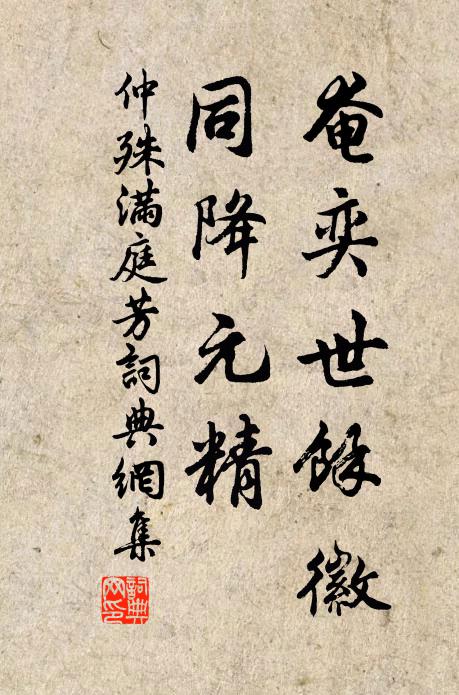 奄奕世餘徽
同降元精
仲殊滿庭芳詞典網集
詞典網印